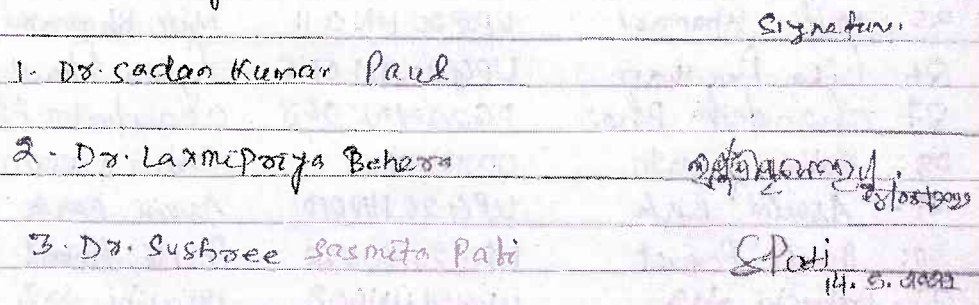 Signature
1. Dr. Sadan Kumar Paul
2. Dr. Laxmipriya Behera
3. Dr. Sushree Sasmita Pati SPati
14.5.2022